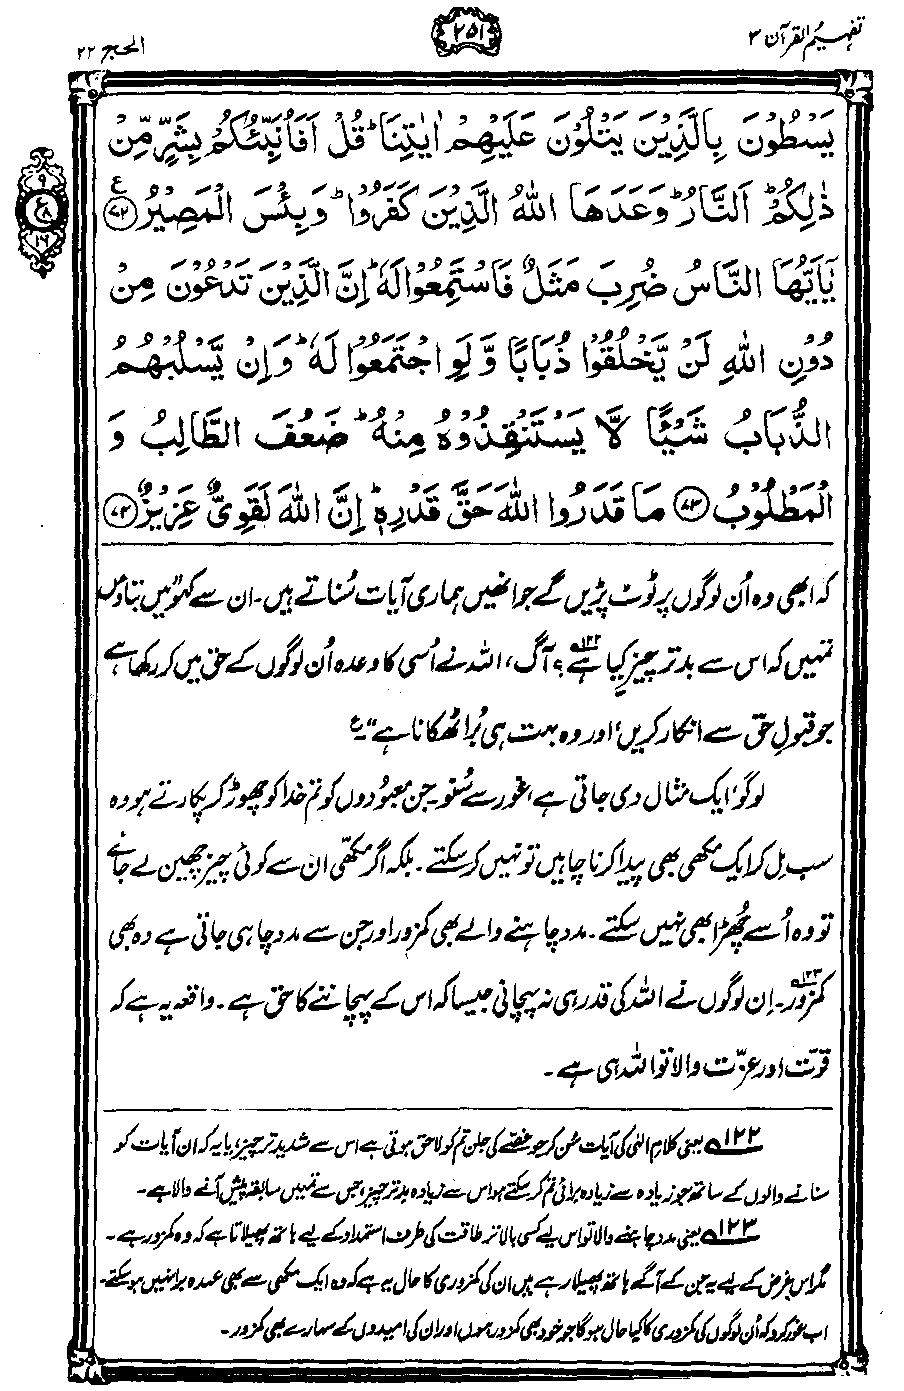 تفہیم القرآن ۳
۲۵۱
الحج ۲۲
يَسْطُوْنَ بِالَّذِيْنَ يَتْلُوْنَ عَلَيْهِمْ اٰيٰتِنَا ؕ قُلْ اَفَاُنَبِّئُكُمْ بِشَرٍّ مِّنْ
ذٰلِكُمْ ؕ اَلنَّارُ ؕ وَعَدَهَا اللّٰهُ الَّذِيْنَ كَفَرُوْا ؕ وَبِئْسَ الْمَصِيْرُ ﴿۷۲﴾ ع
۹
ع ۸
۱۶
يٰۤاَيُّهَا النَّاسُ ضُرِبَ مَثَلٌ فَاسْتَمِعُوْا لَهٗ ؕ اِنَّ الَّذِيْنَ تَدْعُوْنَ مِنْ
دُوْنِ اللّٰهِ لَنْ يَّخْلُقُوْا ذُبَابًا وَّلَوِ اجْتَمَعُوْا لَهٗ ؕ وَاِنْ يَّسْلُبْهُمُ
الذُّبَابُ شَيْـًٔا لَّا يَسْتَنْقِذُوْهُ مِنْهُ ؕ ضَعُفَ الطَّالِبُ وَ
الْمَطْلُوْبُ ﴿۷۳﴾ مَا قَدَرُوا اللّٰهَ حَقَّ قَدْرِهٖ ؕ اِنَّ اللّٰهَ لَقَوِيٌّ عَزِيْزٌ ﴿۷۴﴾
کہ ابھی وہ اُن لوگوں پر ٹوٹ پڑیں گے جو انھیں ہماری آیات سُناتے ہیں۔ ان سے کہو ”میں بتاؤں
تمہیں کہ اس سے بدتر چیز کیا ہے۱۲۲؟ آگ، اللہ نے اُسی کا وعدہ اُن لوگوں کے حق میں کر رکھا ہے
جو قبولِ حق سے انکار کریں، اور وہ بہت ہی بُرا ٹھکانا ہے“۔ ع
لوگو، ایک مثال دی جاتی ہے، غور سے سُنو۔ جن معبُودوں کو تم خدا کو چھوڑ کر پکارتے ہو وہ
سب مِل کر ایک مکھی بھی پیدا کرنا چاہیں تو نہیں کر سکتے۔ بلکہ اگر مکھّی ان سے کوئی چیز چھین لے جائے
تو وہ اُسے چُھڑا بھی نہیں سکتے۔ مدد چاہنے والے بھی کمزور اور جن سے مدد چاہی جاتی ہے وہ بھی
کمزور۱۲۳۔ اِن لوگوں نے اللہ کی قدر ہی نہ پہچانی جیسا کہ اس کے پہچاننے کا حق ہے۔ واقعہ یہ ہے کہ
قوّت اور عزّت والا تو اللہ ہی ہے۔
۱۲۲ یعنی کلامِ الٰہی کی آیات سُن کر جو غصّے کی جلن تم کو لاحق ہوتی ہے اس سے شدید تر چیز، یا یہ کہ ان آیات کو
سنانے والوں کے ساتھ جو زیادہ سے زیادہ برائی تم کر سکتے ہو اس سے زیادہ بدتر چیز، جس سے تمہیں سابقہ پیش آنے والا ہے۔
۱۲۳ یعنی مدد چاہنے والا تو اس لیے کسی بالاتر طاقت کی طرف استمداد کے لیے ہاتھ پھیلاتا ہے کہ وہ کمزور ہے۔
مگر اس غرض کے لیے یہ جن کے آگے ہاتھ پھیلا رہے ہیں ان کی کمزوری کا حال یہ ہے کہ وہ ایک مکھی سے بھی عہدہ برا نہیں ہو سکتے۔
اب غور کرو کہ اُن لوگوں کی کمزوری کا کیا حال ہوگا جو خود بھی کمزور ہوں اور ان کی امیدوں کے سہارے بھی کمزور۔